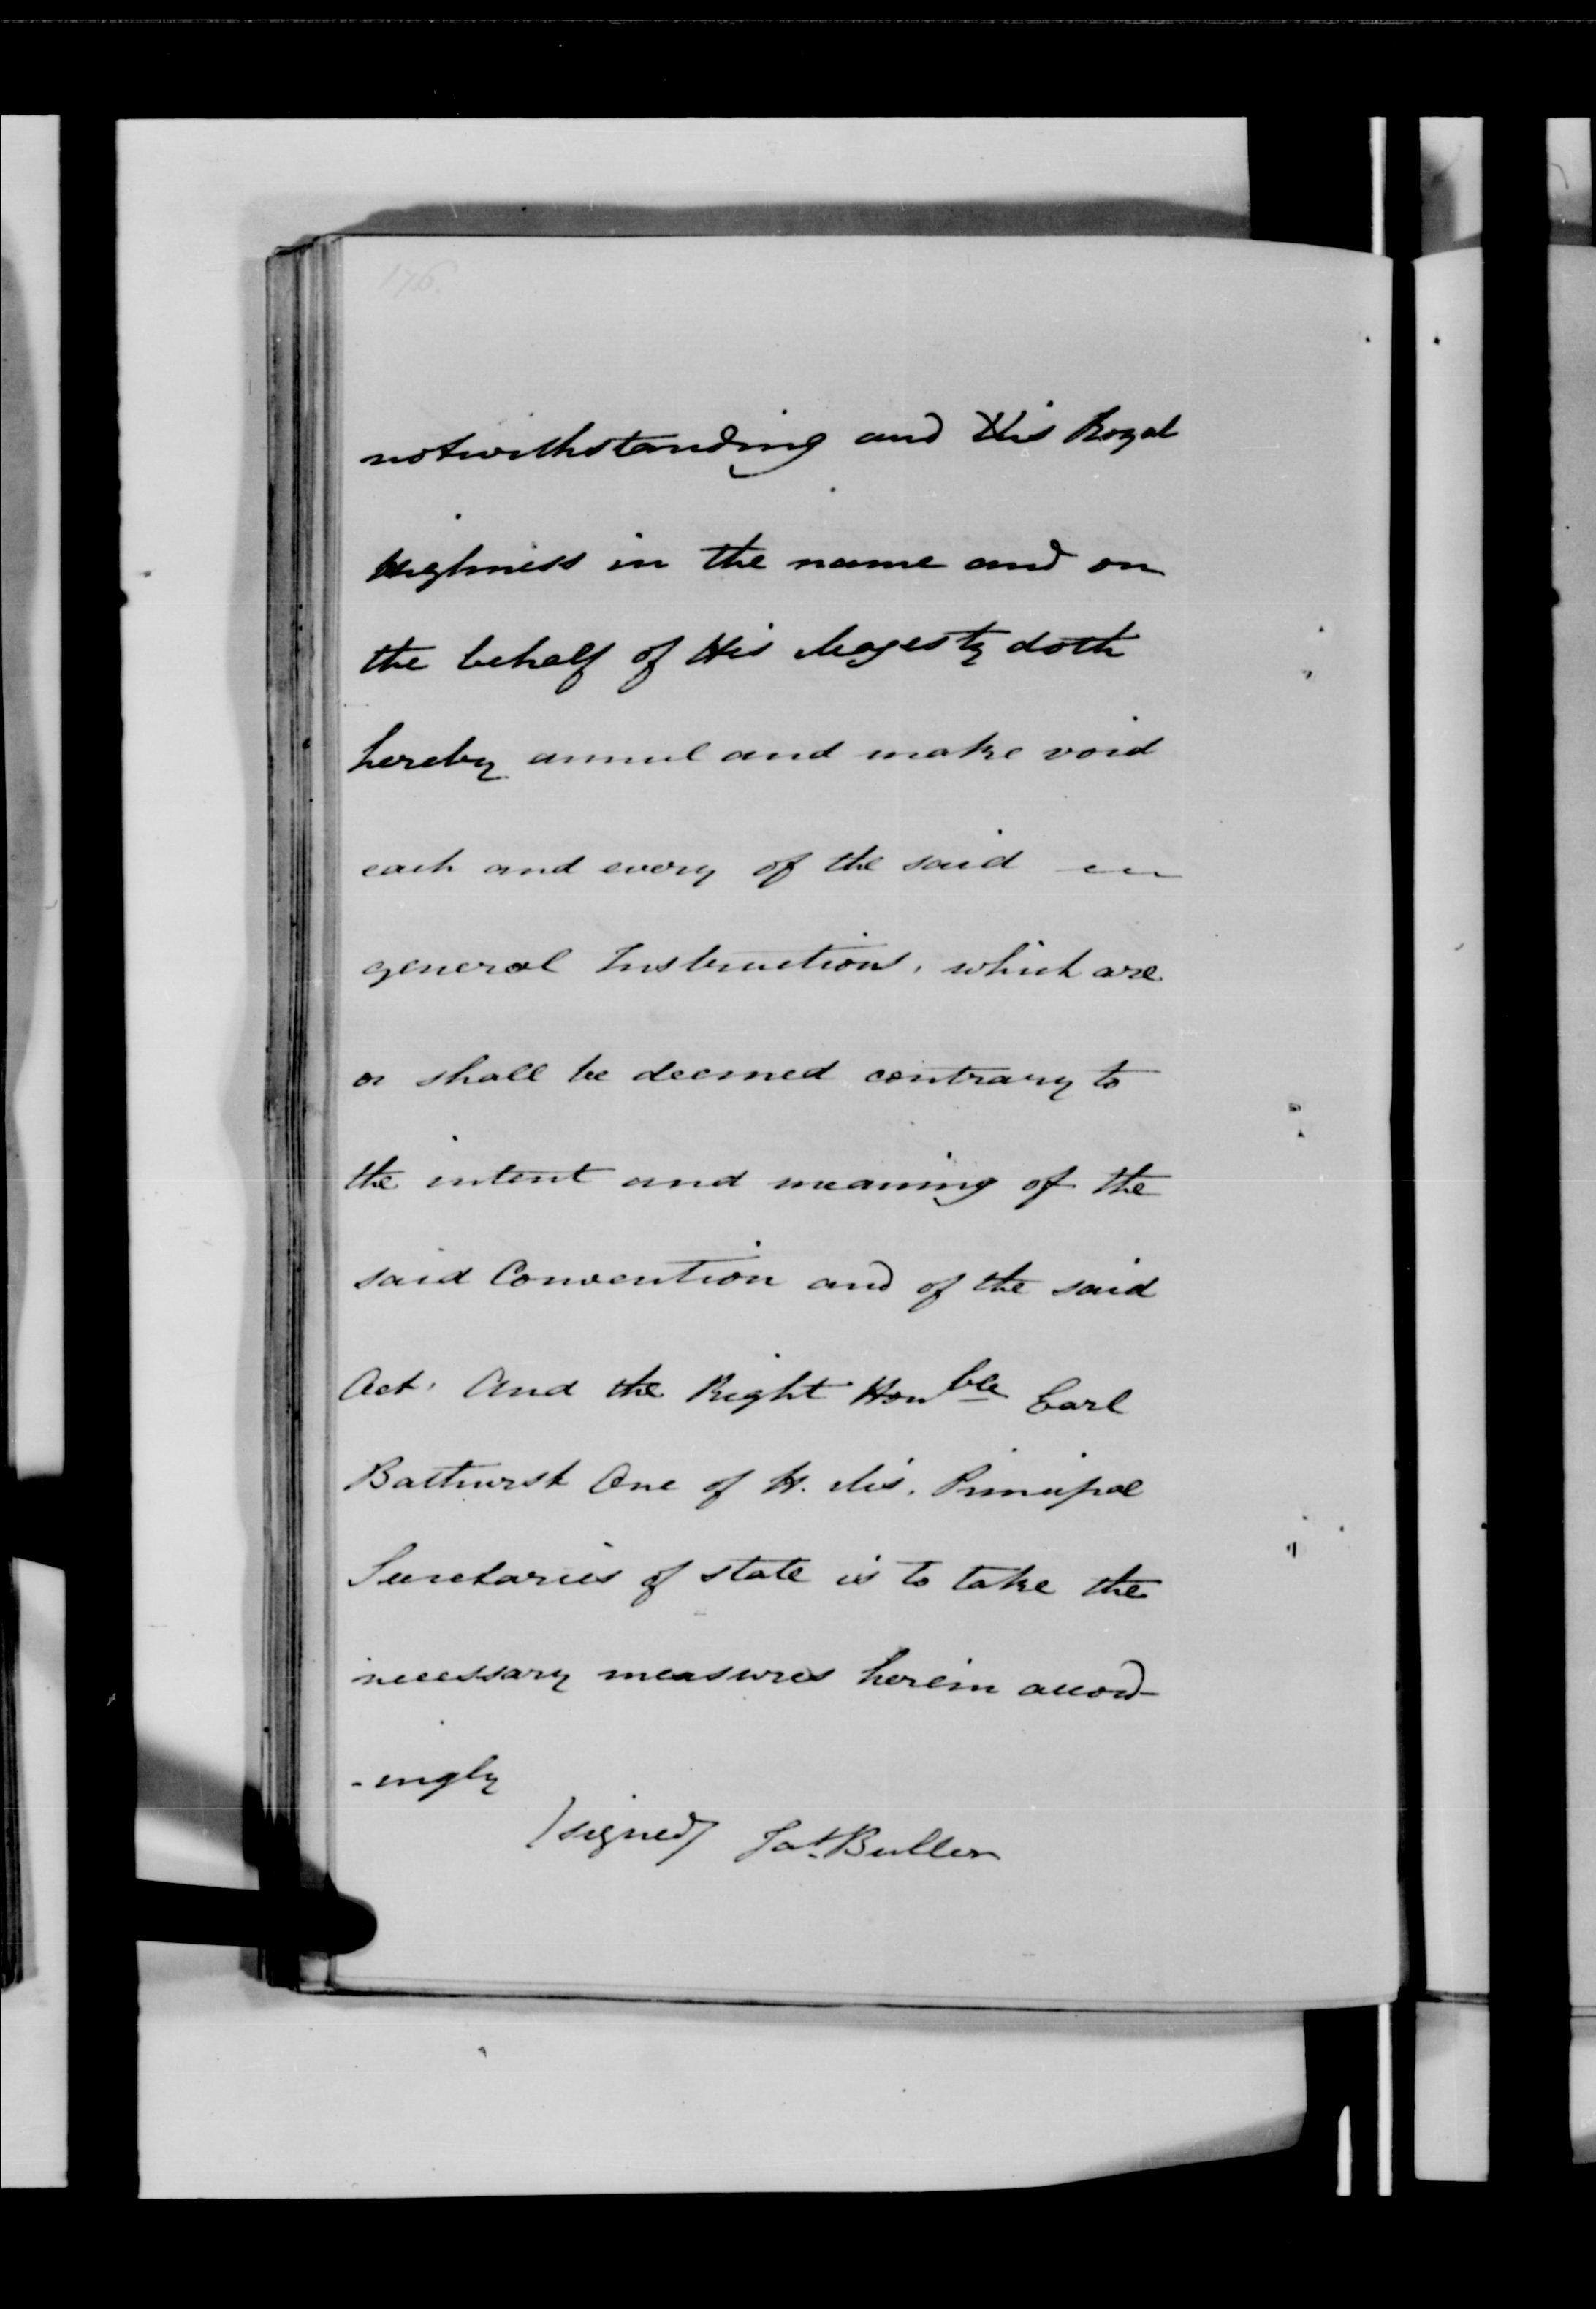 176.
notwithstanding and His Royal
Highness in the name and on
the behalf of His Majesty doth
hereby annul and make void
each and every of the said
general Instructions, which are
or shall be deemed contrary to
the intent and meaning of the
said Convention and of the said
Act. And the Right Honble Earl
Bathurst One of H. M's. Principal
Secretaries of state is to take the
necessary measures herein accord-
-ingly
(signed) Jas. Buller